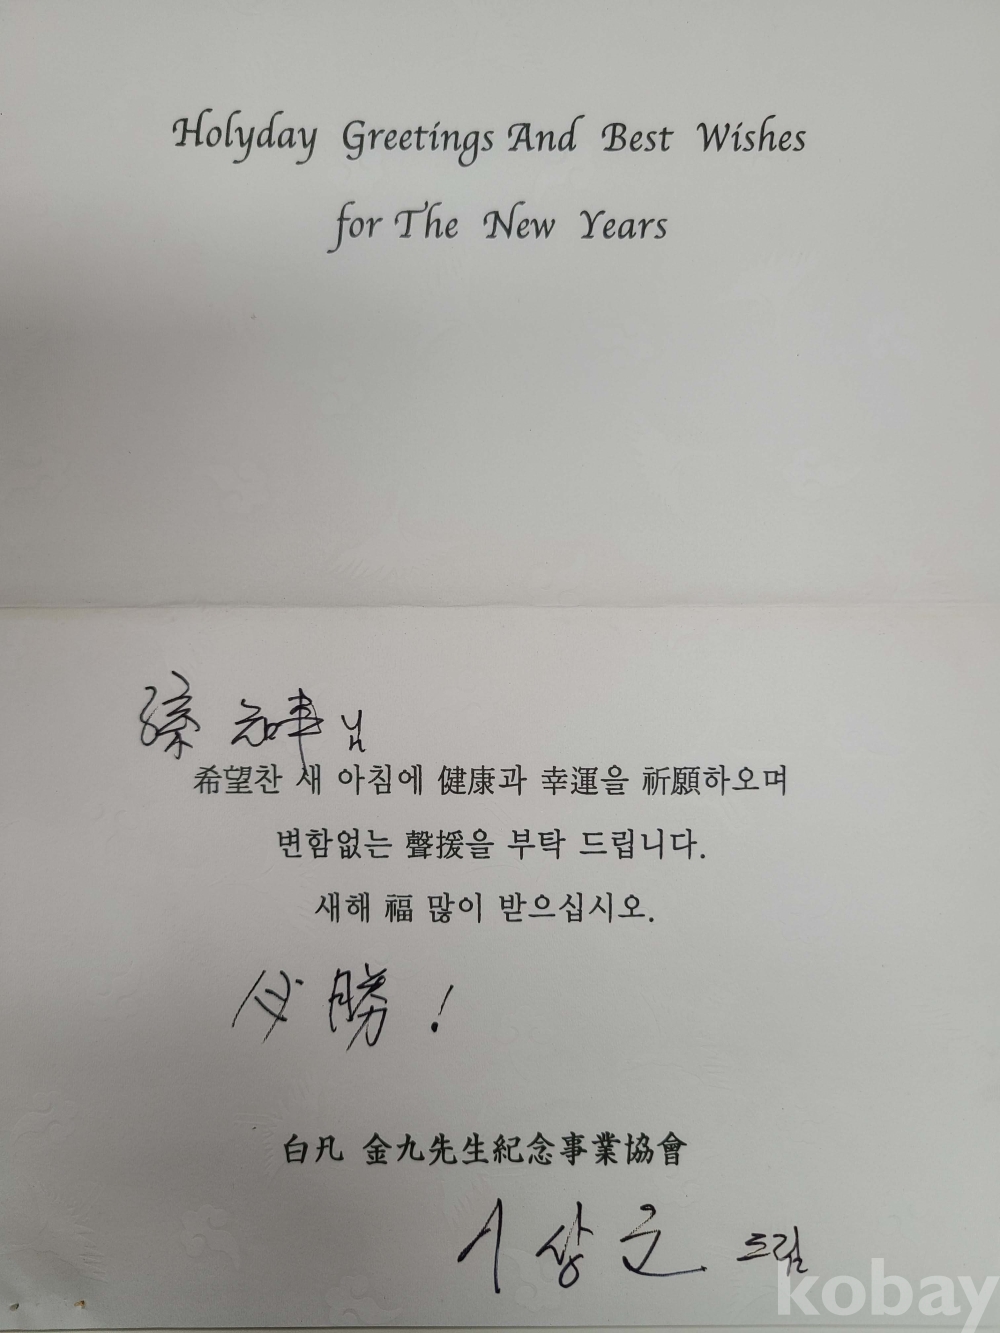 Holyday Greetings And Best Wishes
for The New Years
님
希望찬 새 아침에 健康과 幸運을 祈願하오며
변함없는 聲援을 부탁 드립니다.
새해 福 많이 받으십시오.
必勝!
白凡 金九先生紀念事業協會
드림
kobay